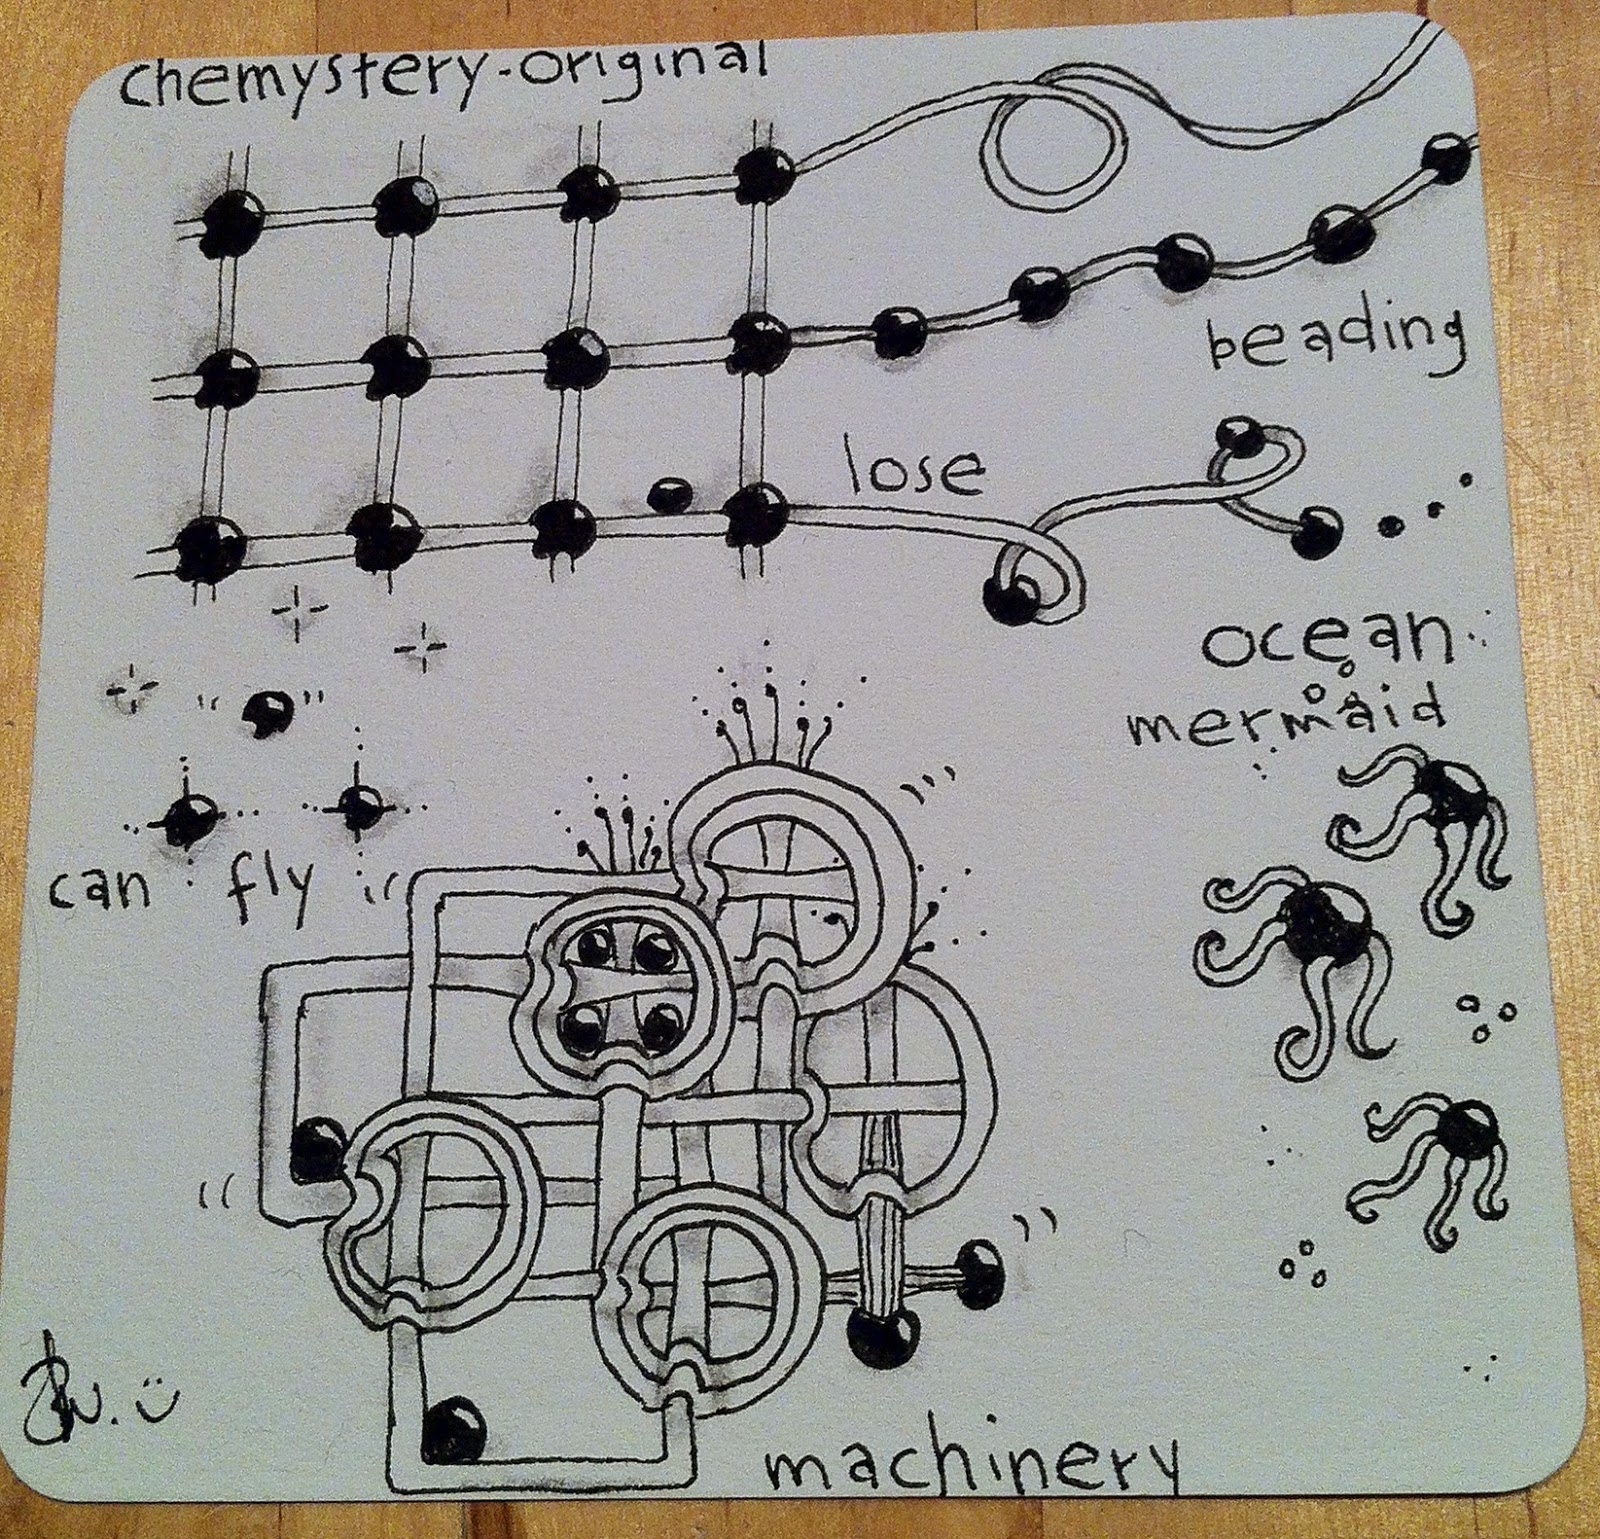 chemystery-original
beading
lose
ocean
mermaid
can fly
machinery